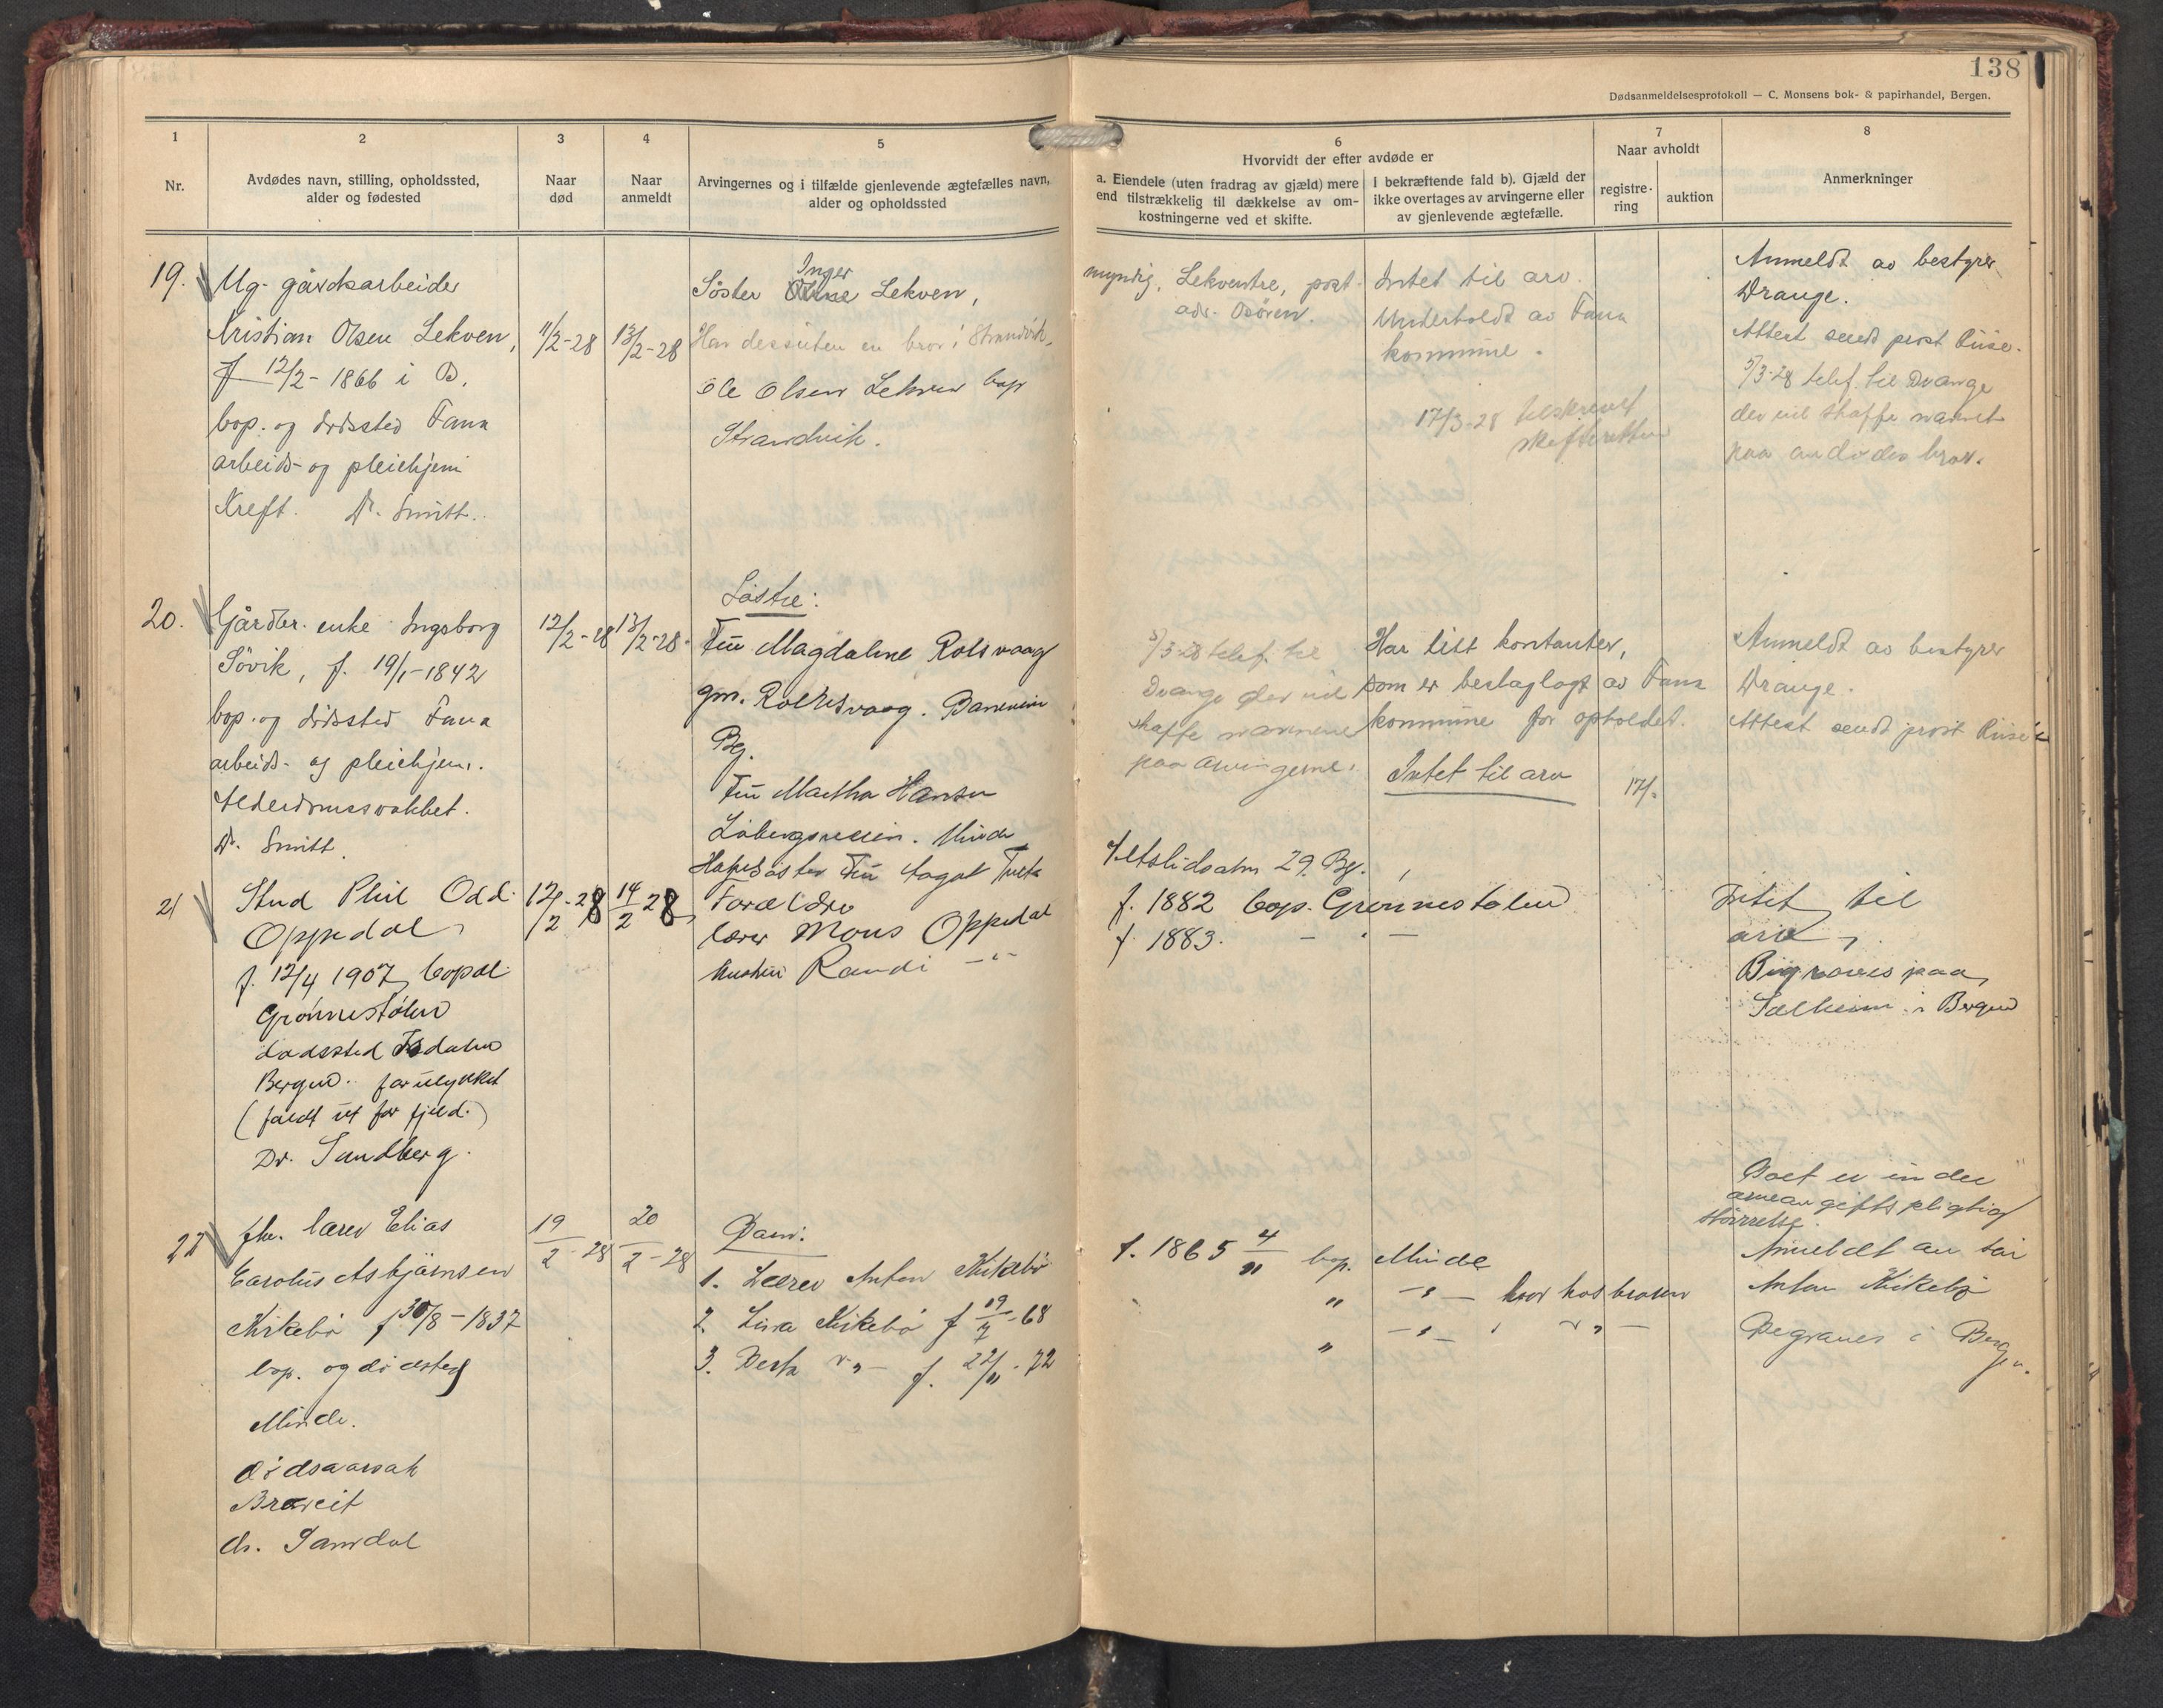 138
Dødsanmeldelsesprotokoll — C. Monsens bok- & papirhandel, Bergen.
1
Nr.
2
Avdødes navn, stilling, opholdssted,
alder og fødested
3
Naar
død
4
Naar
anmeldt
5
Arvingernes og i tilfælde gjenlevende ægtefælles navn,
alder og opholdssted
6
Hvorvidt der efter avdøde er
a. Eiendele (uten fradrag av gjæld) mere
end tilstrækkelig til dækkelse av om-
kostningerne ved et skifte.
I bekræftende fald b). Gjæld der
ikke overtages av arvingerne eller
av gjenlevende ægtefælle.
7
Naar avholdt
registre-
ring
auktion
8
Anmerkninger
19.
Ug. gårdsarbeider
Kristian Olsen Lekven,
f 12/2 - 1866 i O.
bop. og dødssted Fana
arbeids- og pleiehjem
Kreft. Dr. Smitt.
11/2-28
13/2-28
Inger
Søster Lekven,
Har dessuten en bror i Strandvik,
Ole Olsen Lekven bop
Strandvik.
myndig, Lekventre, post
adr. Osøren.
Intet til arv.
Underholdt av Fana
kommune.
17/3-28 tilskrevet
skifteretten
Anmeldt av bestyrer
Drange.
Attest sendt prost Riise.
5/3-28 telef. til Drange
der vil skaffe navnet
paa avdødes bror.
20.
Gårdbr. enke Ingeborg
Søvik, f. 19/1-1842
bop. og dødssted Fana
arbeids- og pleiehjem.
Alderdomssvakhet.
Dr. Smitt
12/2-28
13/2-28
Søstre:
Fru Magdalene Rolsvaag
gm. Rolfsvaag.
Bg.
Fru Martha Hansen
Minde
Halvsøster Fru
5/3-28 telef. til
Drange der vil
skaffe navnene
paa arvingerne.
Har litt kontanter,
som er beslaglagt av Fana
kommune for opholdet.
Intet til arv
17/.
29. Bg.
Anmeldt av bestyrer
Drange.
Attest sendt prost Riise
21
Stud Phil Odd
Oppedal
f. 12/4 1907 bopæl
Grønnestølen
dødssted Isdalen
Bergen. forulykket
(faldt ut for fjeld.)
Dr. Sundberg.
12/2-28
14/2 28
Forældre
lærer Mons Oppedal
hustru Randi — " —
f. 1882 bop. Grønnestølen
f. 1883. — " —
Intet til
arv.
Bigraves paa
Solheim i Bergen
22
fhv. lærer Elias
Carolus Asbjørnsen
Kirkebø f 30/8 - 1837
bop. og dødsted
Minde.
dødsaarsak
dr. Samdal
19/2-28
20/2-28
Barn:
1. Lærer Anton Kirkebø
2. Lina Kirkebø f 19/7-68
3. Berta — " — f. 22/11-72
f. 1865 4/11 bop. Minde
" — " — bor hos broren
" — " — — " —
Boet er under
arveavgiftspligtig
størrelse.
Anmeldt av
Anton Kirkebø
Begraves i Bergen.